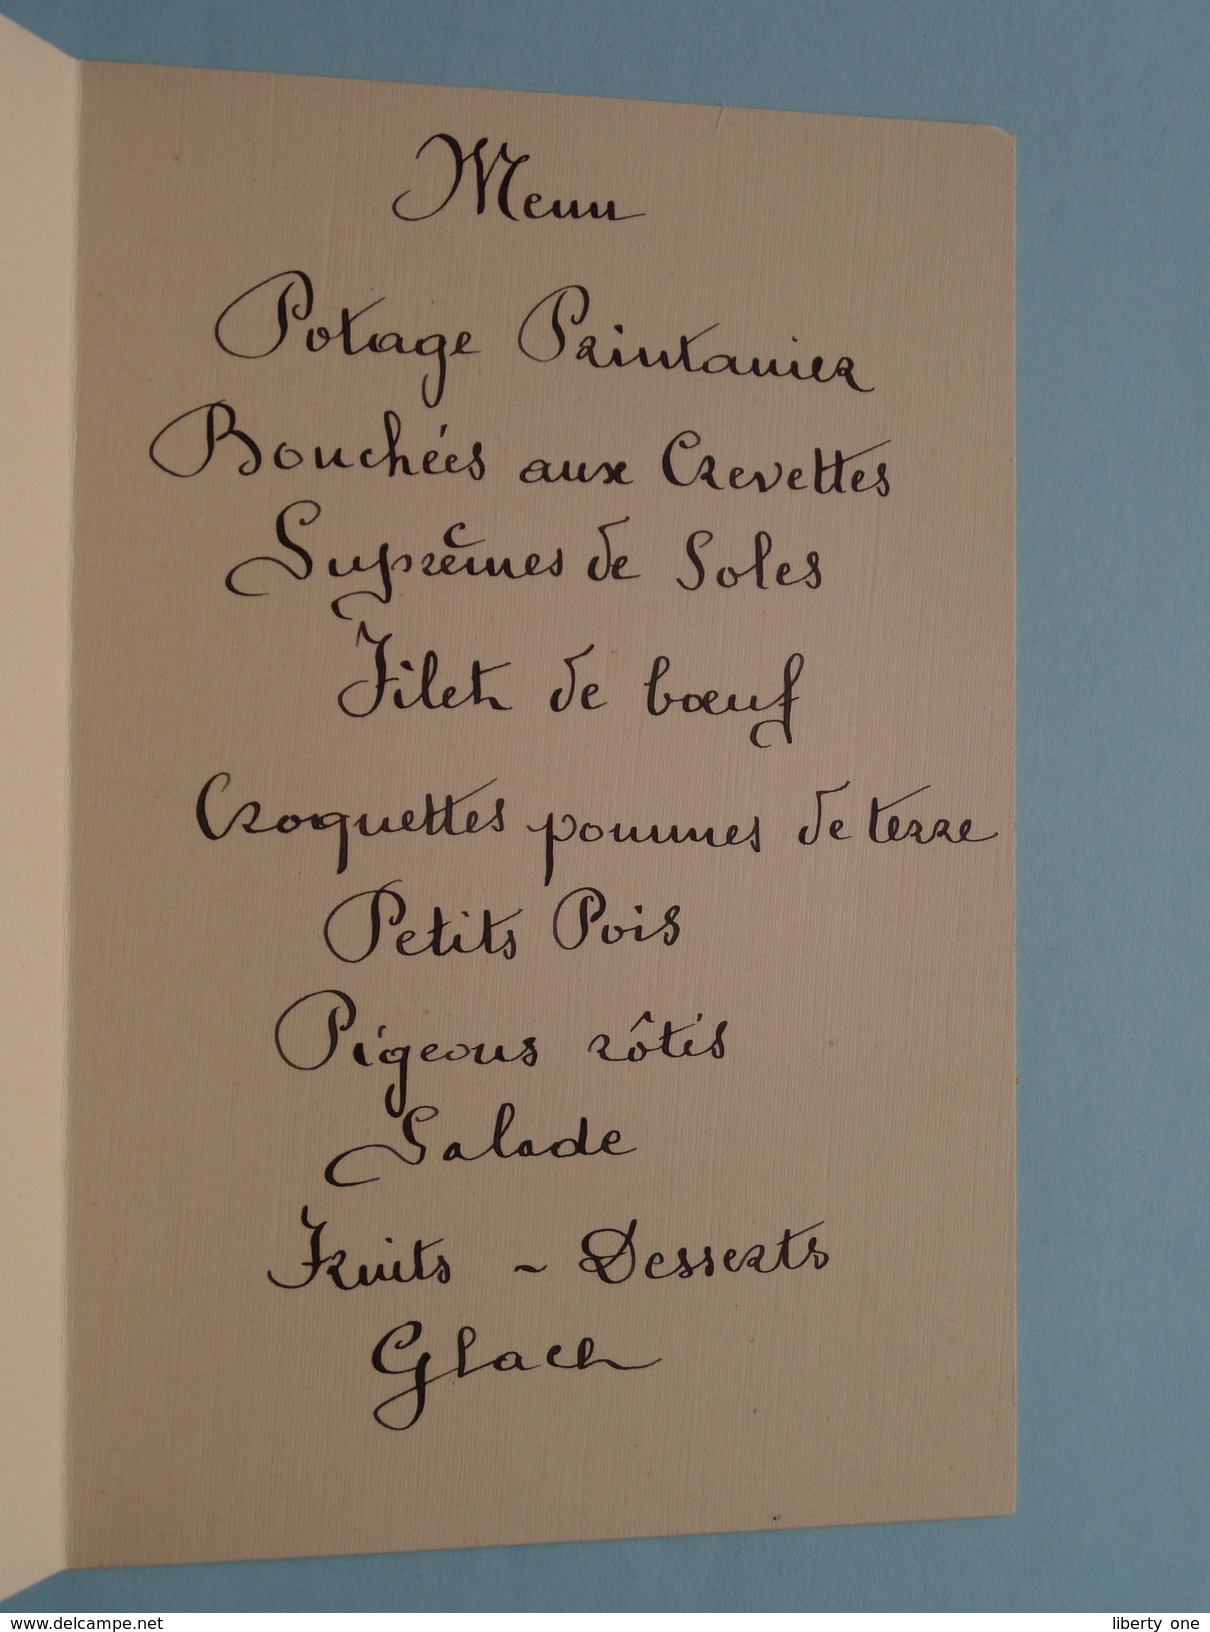 Menu
Potage Printanier
Bouchées aux Crevettes
Suprêmes de Soles
Filet de bœuf
Croquettes pommes de terre
Petits Pois
Pigeons rôtis
Salade
Fruits - Desserts
Glace
www.delcampe.net
liberty_one